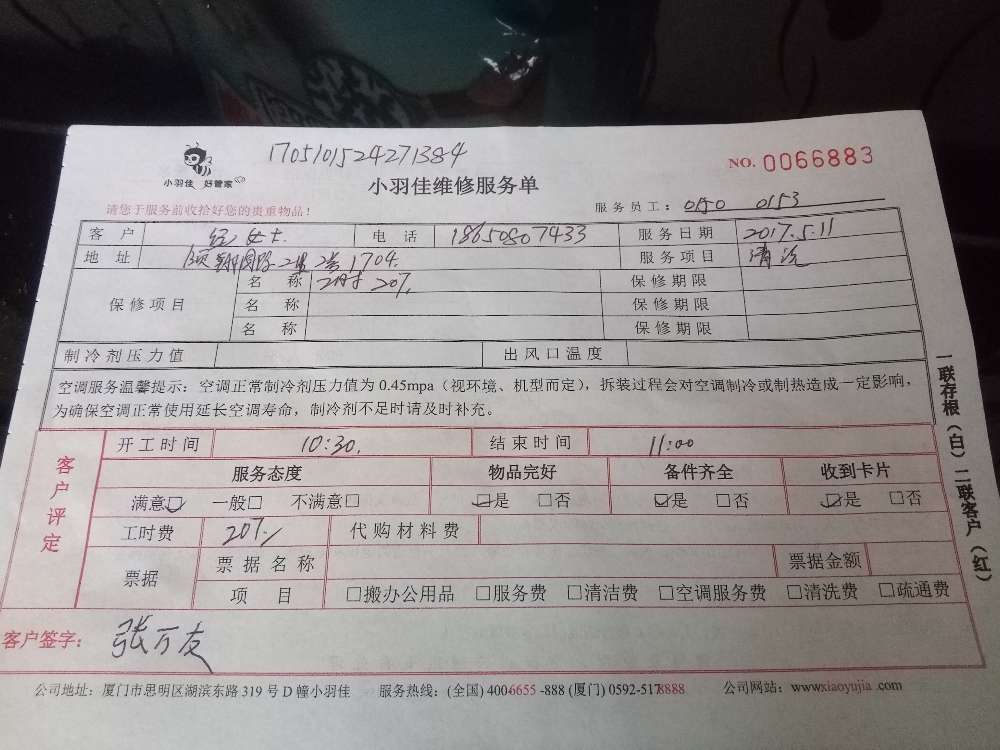 1705101524271384
NO. 0066883
小羽佳 好管家
小羽佳维修服务单
请您于服务前收拾好您的贵重物品！
服务员工： 0153
客户 女士 电话 18650807433 服务日期 2017.5.11
地址 1704 服务项目 清洗
保修项目 名称 保修期限
名称 保修期限
名称 保修期限
制冷剂压力值 出风口温度
空调服务温馨提示：空调正常制冷剂压力值为 0.45mpa（视环境、机型而定），拆装过程会对空调制冷或制热造成一定影响，
为确保空调正常使用延长空调寿命，制冷剂不足时请及时补充。
一联存根（白）二联客户（红）
客户评定
开工时间 10:30. 结束时间 11:00
服务态度 物品完好 备件齐全 收到卡片
满意□ 一般□ 不满意□ □是 □否 ☑是 □否 □是 □否
工时费 代购材料费
票据 票据名称 票据金额
项目 □搬办公用品 □服务费 □清洁费 □空调服务费 □清洗费 □疏通费
客户签字： 张万友
公司地址：厦门市思明区湖滨东路 319 号 D 幢小羽佳 服务热线：(全国) 4006655-888 (厦门) 0592-5178888 公司网站：www.xiaoyujia.com